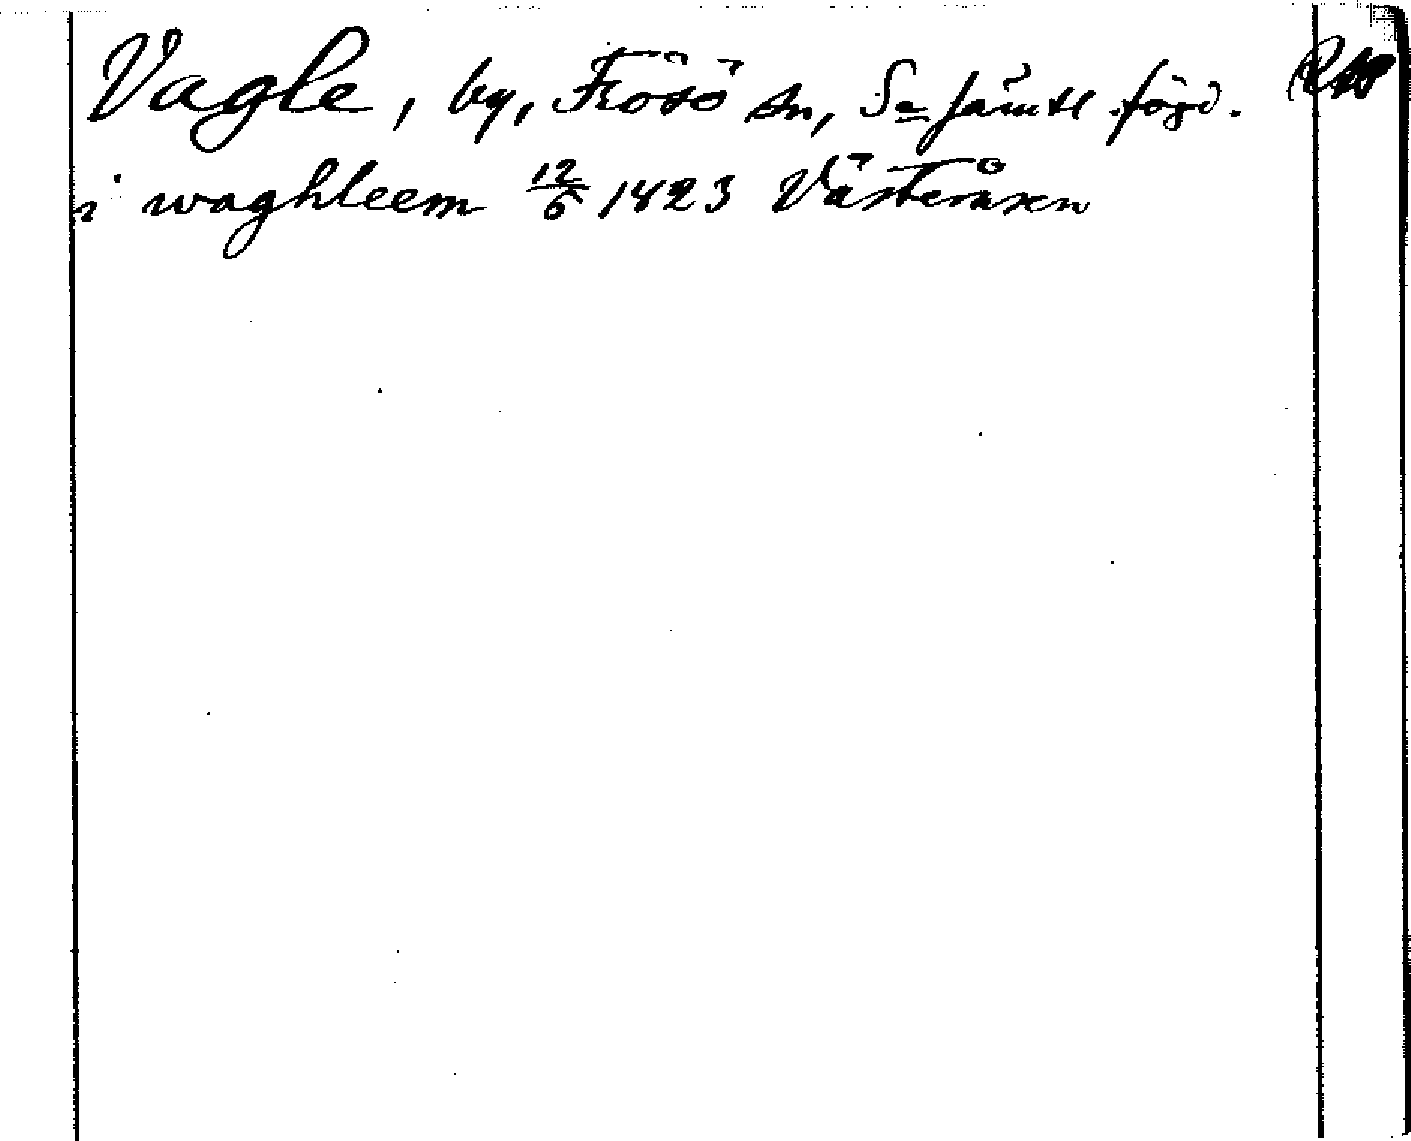 Vagle, by, Frösö sn, Sa Jämtl. fögd.
i waghleem 12/6 1423 Västeråsen